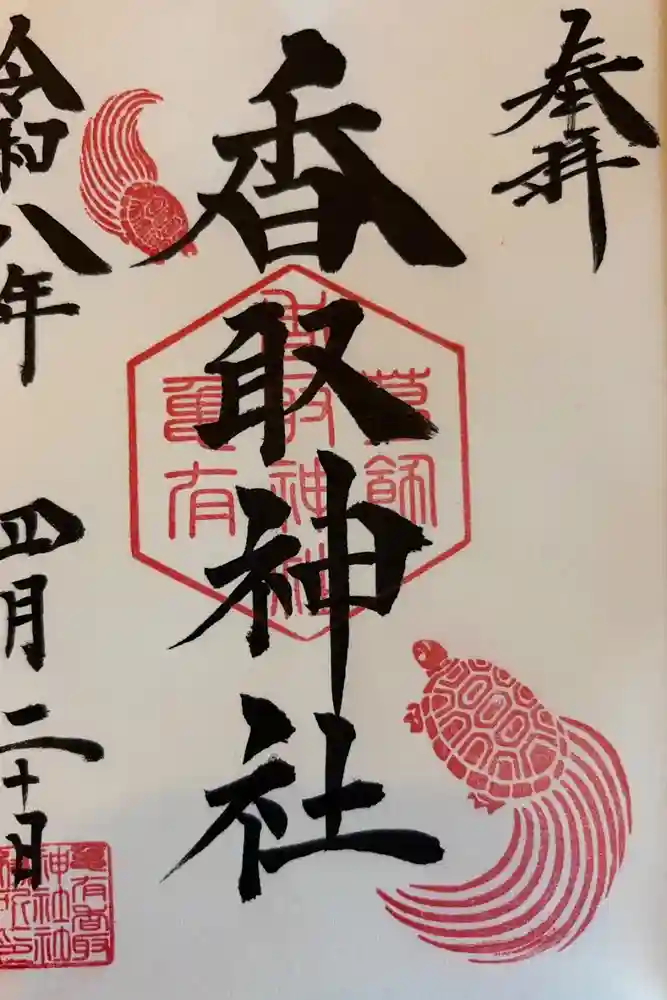 奉拝
香取神社
令和八年 四月二十日
葛飾
香取神社
亀有
亀有香取
神社社
務所之印